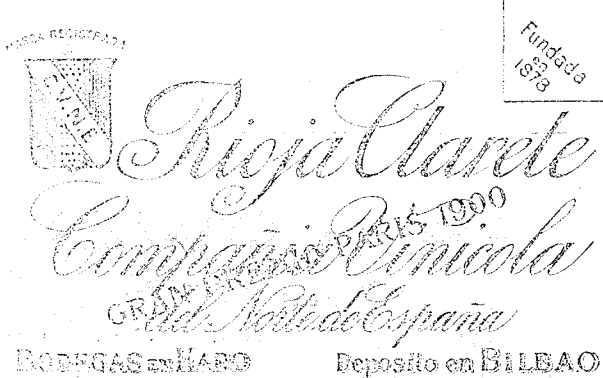 MARCA REGISTRADA
C.V.N.E
Fundada
en
1878
Rioja Clarete
Compañia Vinicola
GRAN PREMIO PARIS 1900
del Norte de España
BODEGAS EN HARO
Deposito en BILBAO